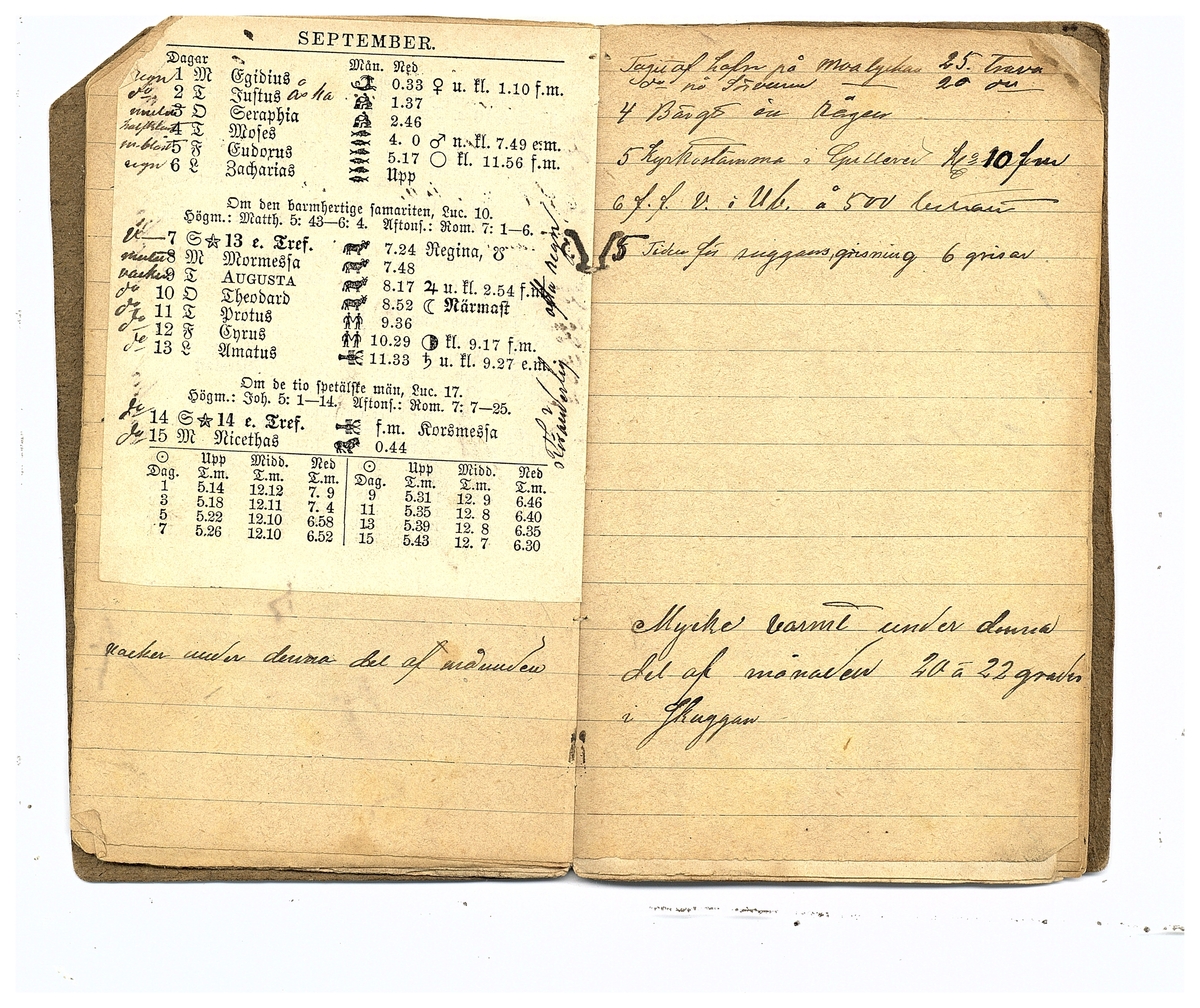 SEPTEMBER.
Dagar Mån. Ned
regn 1 M Egidius 0.33 ♀ u. kl. 1.10 f.m.
do 2 T Justus åska 1.37
3 O Seraphia 2.46
4 T Moses 4. 0 ♂ n. kl. 7.49 e.m.
5 F Eudoxus 5.17 ○ kl. 11.56 f.m.
regn 6 L Zacharias Upp
Om den barmhertige samariten, Luc. 10.
Högm.: Matth. 5: 43—6: 4. Aftons.: Rom. 7: 1—6.
7 S ☆ 13 e. Tref. 7.24 Regina, ☋
8 M Mormessa 7.48
vacker 9 T AUGUSTA 8.17 ♃ u. kl. 2.54 f.m.
do 10 O Theodard 8.52 ☾ Närmast
do 11 T Protus 9.36
do 12 F Cyrus 10.29 ◑ kl. 9.17 f.m.
do 13 L Amatus 11.33 ♄ u. kl. 9.27 e.m.
Om de tio spetälske män, Luc. 17.
Högm.: Joh. 5: 1—14. Aftons.: Rom. 7: 7—25.
do 14 S ☆ 14 e. Tref. f.m. Korsmessa
do 15 M Nicethas 0.44
ofta regn
☉ Upp Midd. Ned ☉ Upp Midd. Ned
Dag. T.m. T.m. T.m. Dag. T.m. T.m. T.m.
1 5.14 12.12 7. 9 9 5.31 12. 9 6.46
3 5.18 12.11 7. 4 11 5.35 12. 8 6.40
5 5.22 12.10 6.58 13 5.39 12. 8 6.35
7 5.26 12.10 6.52 15 5.43 12. 7 6.30
vacker under denna del af månaden
af hafre på 25. Trava
do på 20 do
4 Bärgt in Rågen
5 Kyrkostämma i kl 10 fm
6 f. f. V. i Ub. å 500
5 Tiden för suggans grisning 6 grisar
Mycke varmt under denna
del af månaden 20 à 22 grader
i Skuggan